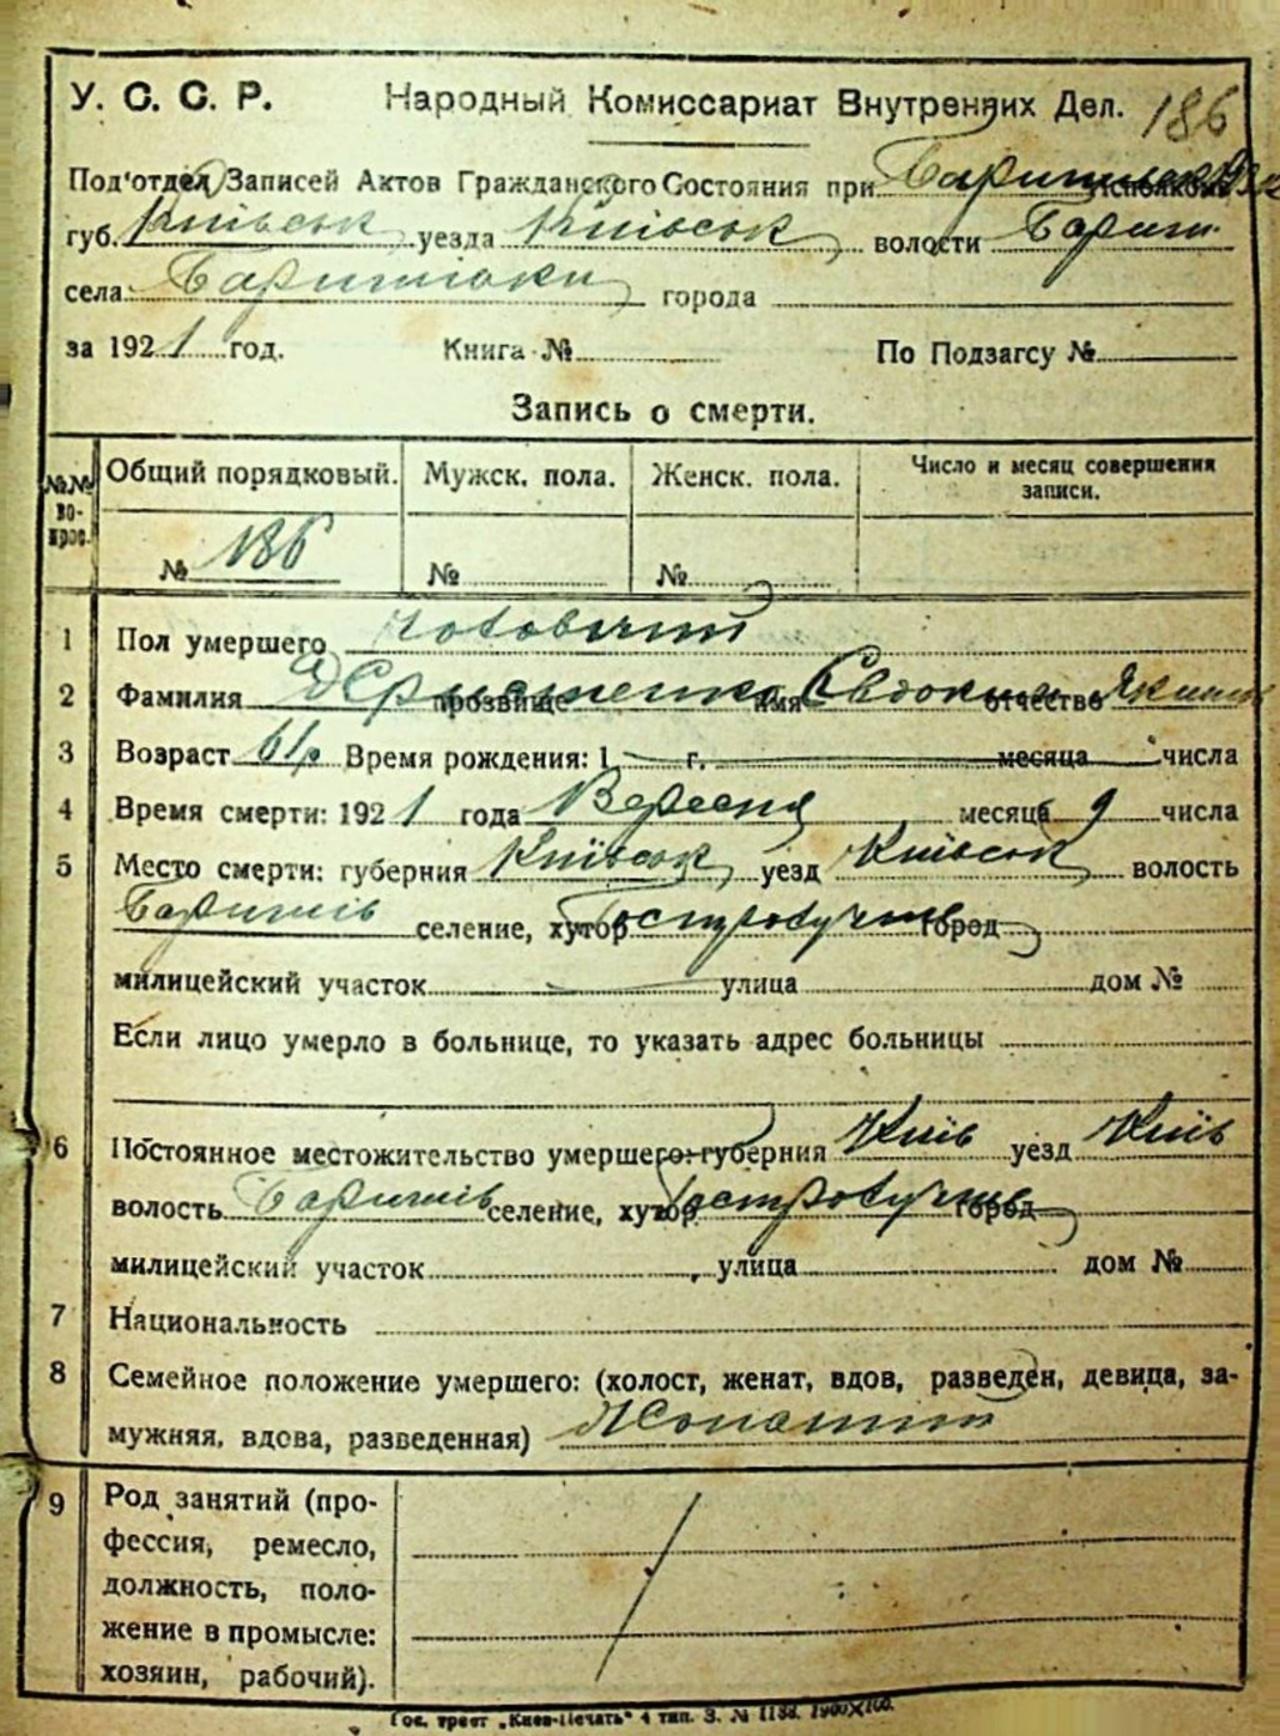 У. С. С. Р. Народный Комиссариат Внутренних Дел. 186
Под'отдел Записей Актов Гражданского Состояния при
губ. Київськ уезда Київськ волости Бариш.
села города
за 1921 год. Книга № По Подзагсу №
Запись о смерти.
№№ вопрос. Общий порядковый. Мужск. пола. Женск. пола. Число и месяц совершения записи.
№ 186 № №
1 Пол умершего чоловичий
2 Фамилия прозвище имя Евдоким отчество
3 Возраст 61р Время рождения: 1 г. месяца числа
4 Время смерти: 1921 года Вересня месяца 9 числа
5 Место смерти: губерния Київськ уезд Київськ волость
Баришів селение, хутор город
милицейский участок улица дом №
Если лицо умерло в больнице, то указать адрес больницы
6 Постоянное местожительство умершего: губерния Київ уезд Київ
волость Баришів селение, хутор город
милицейский участок улица дом №
7 Национальность
8 Семейное положение умершего: (холост, женат, вдов, разведен, девица, за-
мужняя, вдова, разведенная) Жонатий
9 Род занятий (про-
фессия, ремесло,
должность, поло-
жение в промысле:
хозяин, рабочий).
Гос. трест „Киев-Печать" 4 тип. З. № 1188.